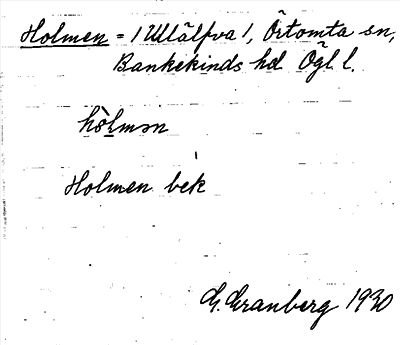 Holmen = / Ullälfva /, Örtomta sn,
Bankekinds hd Ögl l.
hòlmən
Holmen bek
G. Granberg 1930